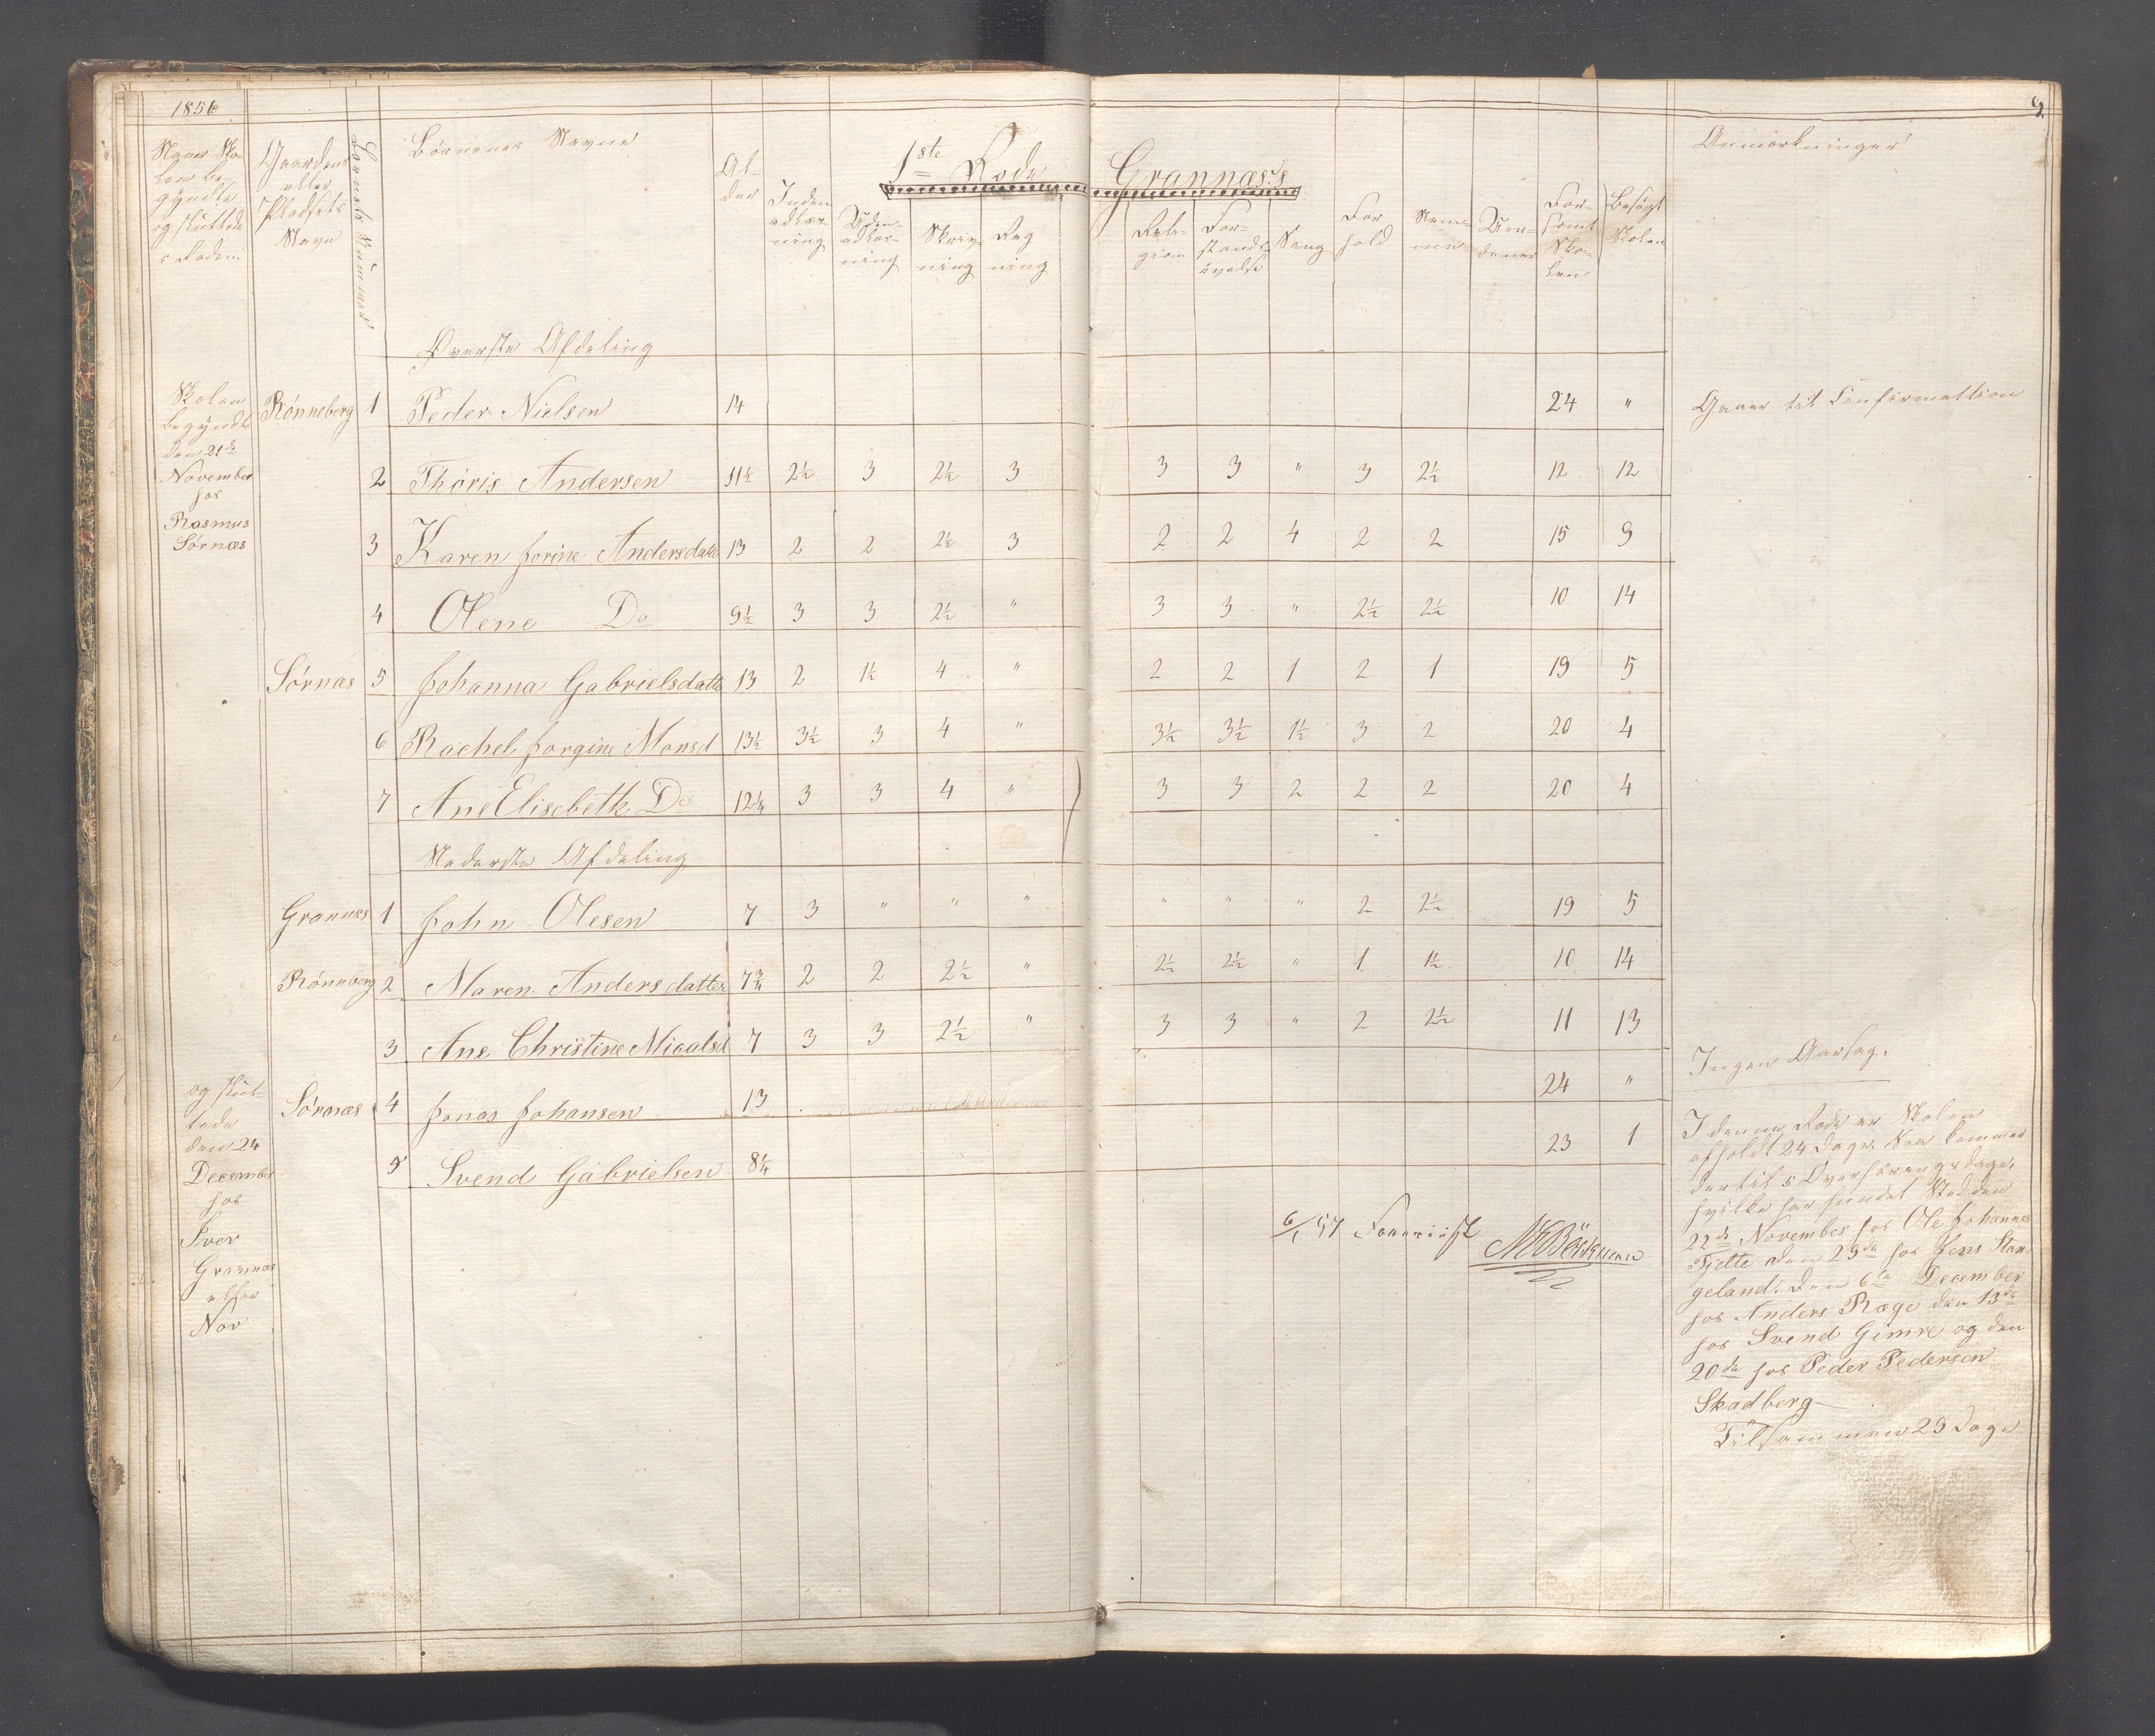 1856
9
1ste Rode Grannæs:s
Naar Sko-
len be-
gyndte
og sluttede
i Roden.
Gaardens
eller
Pladsets
Navn
Barnets Nummer
Børnenes Navne
Al-
der
Inden-
adlæs-
ning
Uden-
adlæs-
ning
Skriv-
ning
Reg
ning
Reli-
gion
For-
stands-
øvelse
Sang
For
hold
Nem-
me
For-
sømt
Sko-
len
Besøgt
Skolen
Anmærkninger
Øverste Afdeling
Skolen
begyndte
den 21de
November
hos
Rasmus
Sørnæs
Rønneberg 1 Peder Nielsen 14 24 " Gaaer til Confirmattion
2 Thøris Andersen 11½ 2½ 3 2½ 3 3 3 " 3 2½ 12 12
3 Karen Jorine Andersdatt 13 2 2 2½ 3 2 2 4 2 2 15 9
4 Olene Do 9½ 3 3 2½ " 3 3 " 2½ 2½ 10 14
Sørnæs 5 Johanna Gabrielsdatte 13 2 1½ 4 " 2 2 1 2 1 19 5
6 Rachel Jorgine Monsd 13½ 3½ 3 4 " 3½ 3½ 1½ 3 2 20 4
7 Ane Elisebeth Do 12¼ 3 3 4 " 3 3 2 2 2 20 4
Nederste Afdeling
Grannæs 1 John Olesen 7 3 " " " " " " 2 2½ 19 5
Rønneberg 2 Maren Andersdatter 7¾ 2 2 2½ " 2½ 2½ " 1 1½ 10 14
3 Ane Christine Micalsd 7 3 3 2½ " 3 3 " 2 2½ 11 13
Sørnæs 4 Jonas Johansen 13 24 " Ingen Aarsag.
5 Svend Gabrielsen 8¼ 23 1
og slut-
tede
den 24
December
hos
Iver
Grannæs
eller
Nov
6/1 57
I denne Rode er Skolen
afholdt 24 Dage. Nu kommer
dertil 5 Overhøringsdage,
hvilke har fundet Sted den
22de November hos Ole Johannes
Tjelte den 29de hos Jens Stan-
geland. den 6te December
hos Anders Ræge den 13de
hos Svend Gimre og den
20de hos Peder Pedersen
Skadberg
Tilsammen 29 Dage